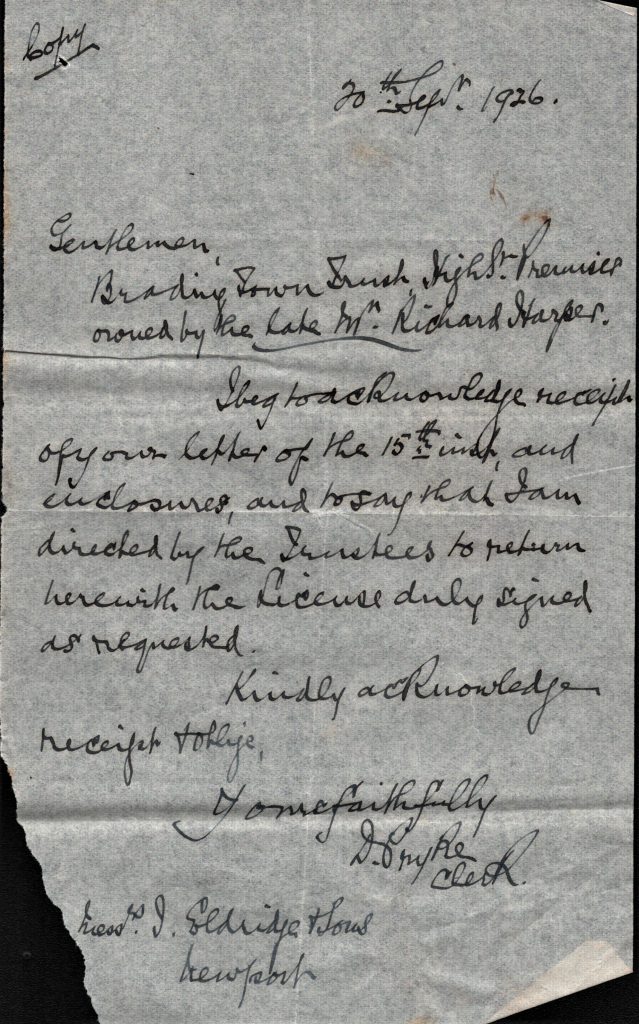 Copy
20th Sepr. 1926.
Gentlemen,
Brading Town Trust, High St. Premises
owned by the late Mr. Richard Harper.
I beg to acknowledge receipt
of your letter of the 15th inst, and
enclosures, and to say that I am
directed by the Trustees to return
herewith the License duly signed
as requested.
Kindly acknowledge
receipt & oblige,
Yours faithfully
D. Pryke
Clerk.
Messrs. J. Eldridge & Sons
Newport